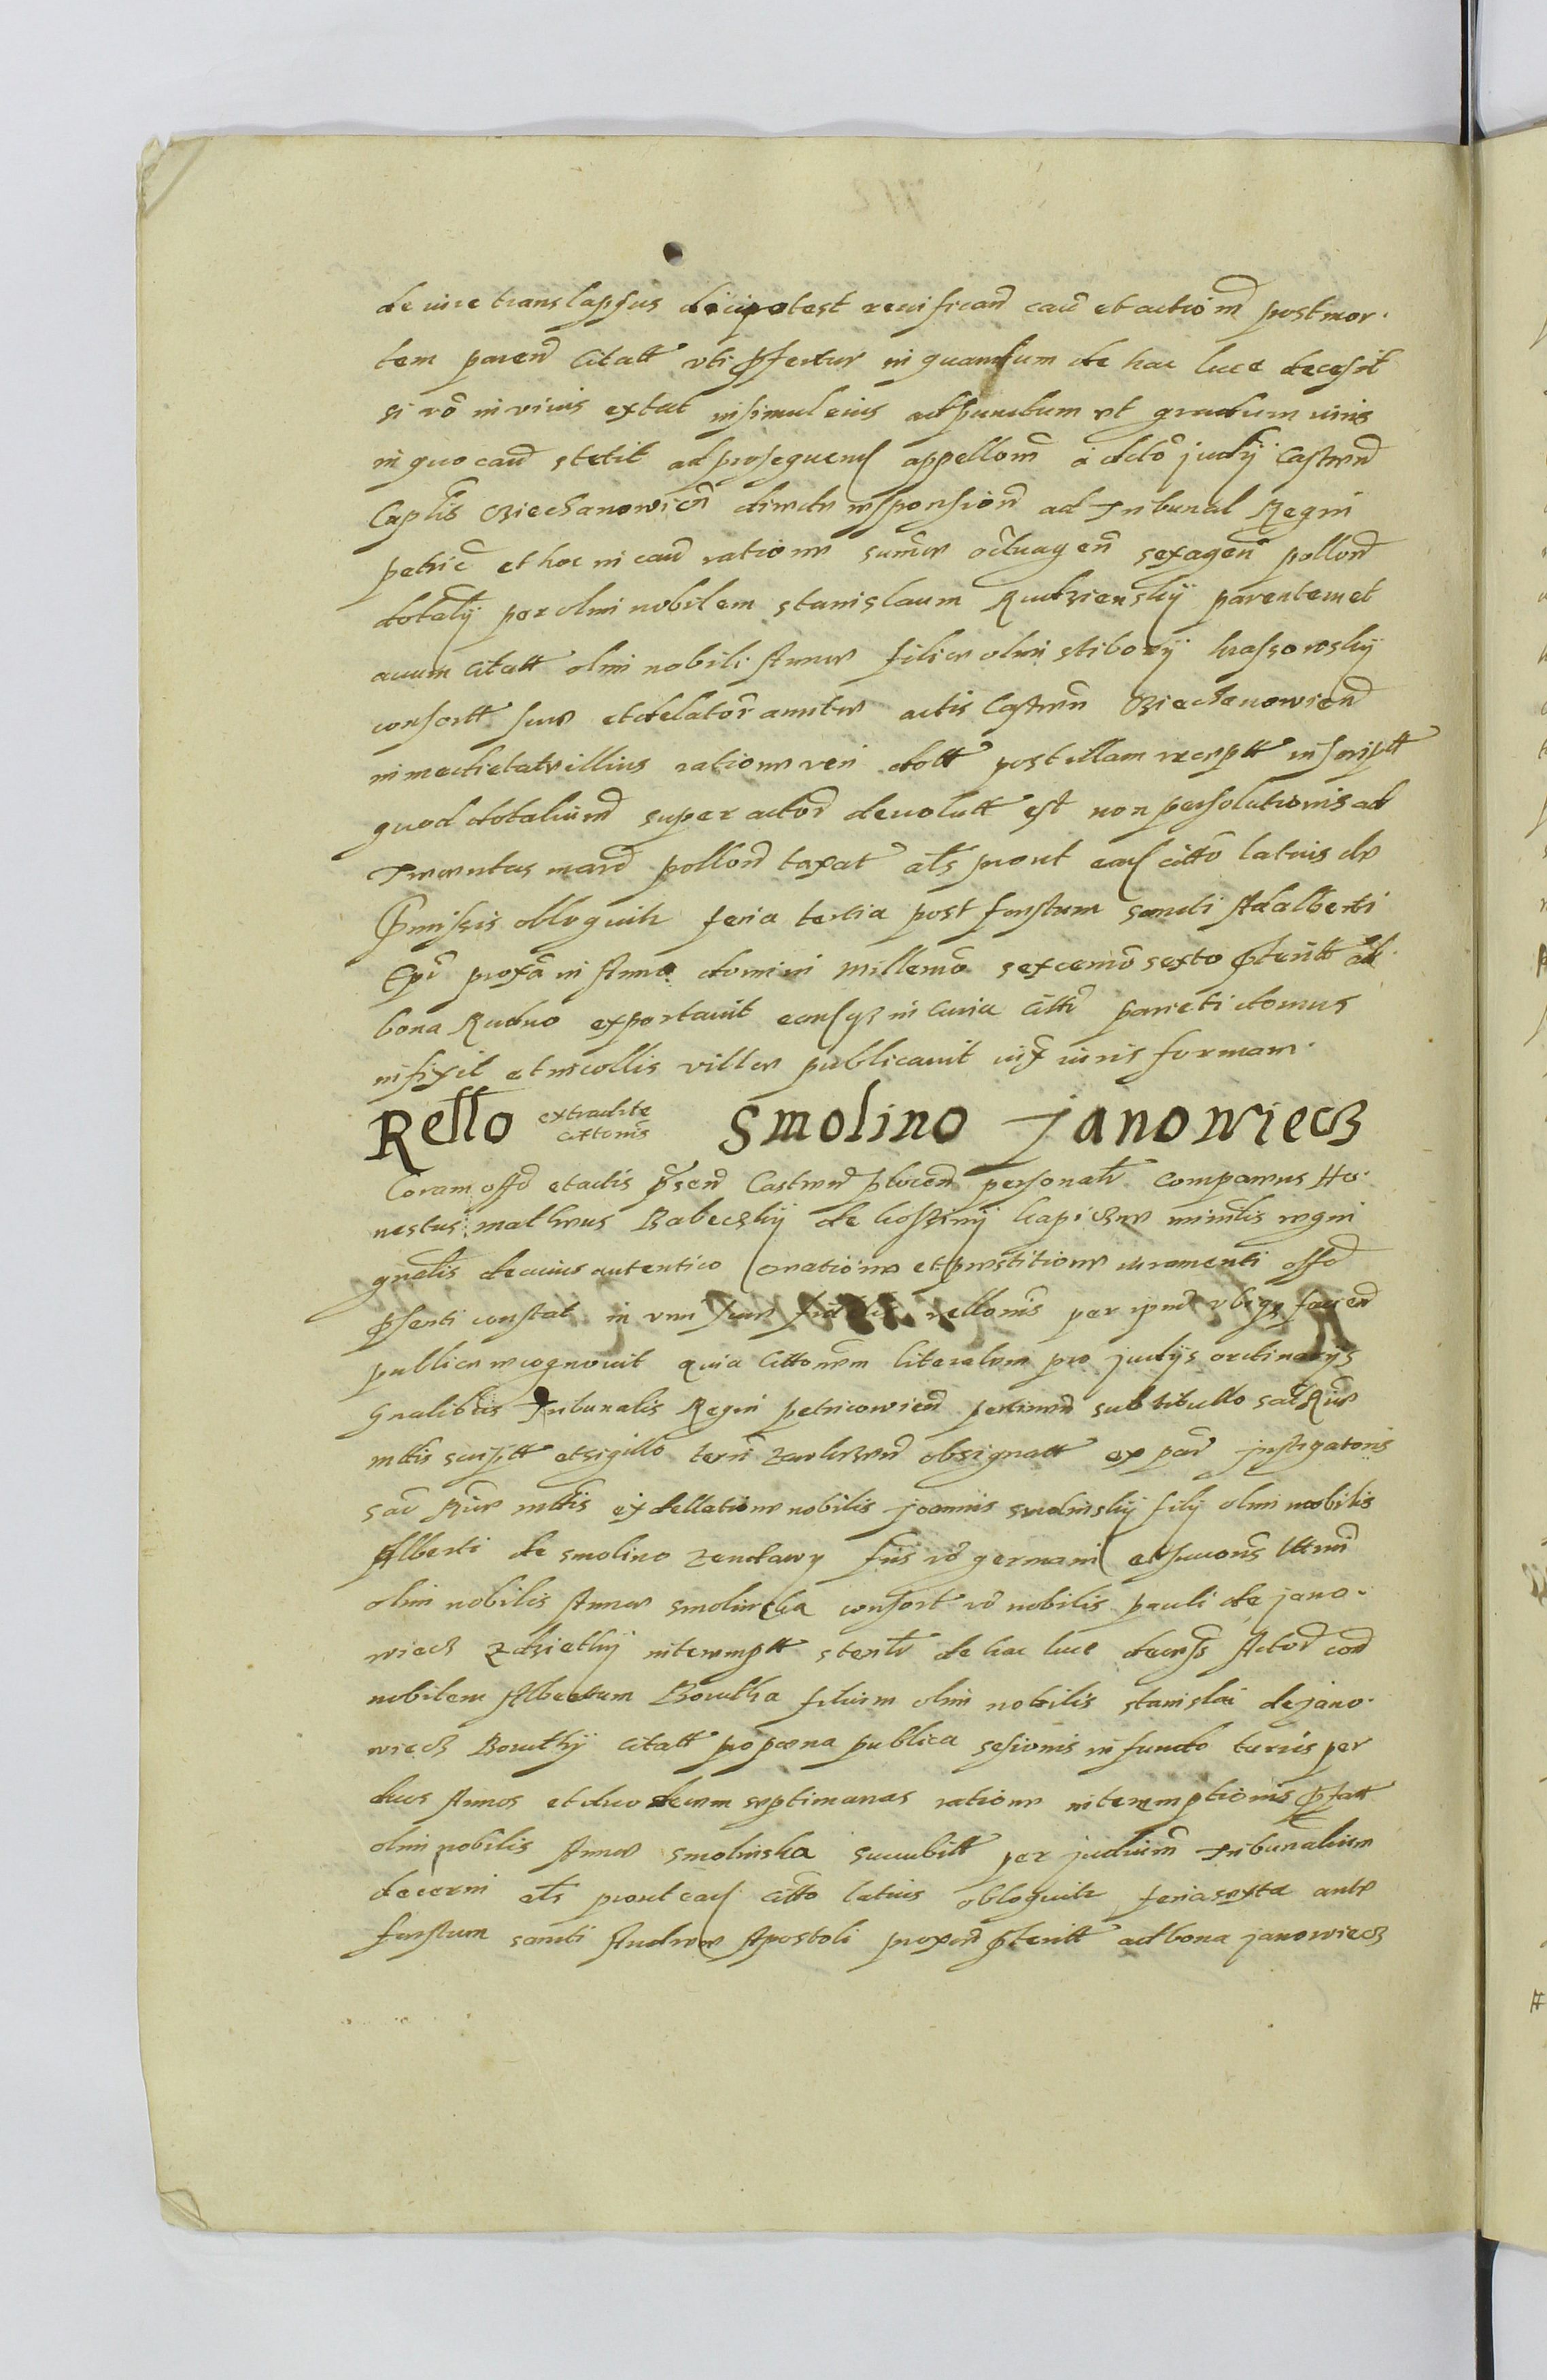 de iure translapsus dici potest revificand caus et actionem post mor-
tem paren citatt uti pfertur in quantum de hac luce decesit
si vo in vivis extat insimul eius ad punctum et gradum iuris
in quo caus stetit ad prosequend appellom a dcto judy Castren
Captlis Cziechanowien directe responsion ad Tribunal Regni
petric et hoc in caus ratione sume octuagen sexagen pollon
dotaly per olim nobilem Stanislaum Rudzienskÿ parentem et
avum citatt olim nobili Annae filiae olim stiborÿ krassowskÿ
consortt suae et delator amitae actis Castren Cziechanowien
in medietate illius ratione veri dott post illam receptt inscriptt
quod dotalium super actor devolutt est non persolutionis ad
Trecentas marc pollon taxat als prout ead citto latius de
Pmissis obloquitr feria tertia post festum sancti Adalberti
Epi proxa in Anno domini Millemo sexcemo sexto pteritt ad
bona Rudno exportavit eamqz in curia citti parieti domus
infixit et incollis villae publicavit iux iuris formam.
Rello extradite cittonis Smolino Janowiecz
Coram offo et actis psen Castren plocen personalr comparens Ho-
nestus matheus Babeczkÿ de koszinÿ kapicznÿ ministlis regni
gnalis de cuius autentico creatione et prestitione iuramenti offo
pfenti constat in vim suae fidelis rellonis per ipm ubiqz facien
publice recognovit quia cittonem literalem pro judÿs ordinarÿs
gnalibus Tribunalis Regni petricowien pertinen sub titullo sac Riae
mttis scriptt et sigillo terri zawkrzen obsignatt ex par instigatoris
sac Riae mttis et dellatione nobilis Joannis smolinskÿ filÿ olim nobilis
Alberti de smolino zendawy fris vo germani et sucoris uttrini
olim nobilis Annae smolinska consort vo nobilis pauli de jano-
wiecz Zdzietkÿ interemptt stenlr de hac luce decess Actor con
nobilem Albertum Boruttha filium olim nobilis stanislai de jano-
wiecz Boruthÿ citatt pro poena publica sesionis in fundo turris per
duos Annos et duodecem septimanas ratione interemptionis pfatt
olim nobilis Annae smolinska succubitt per judicium tribunalium
decerni als prout ead citto latius obloquitr feria sexta ante
festum sancti Andreae Apostoli proxim pteritt ad bona janowiecz